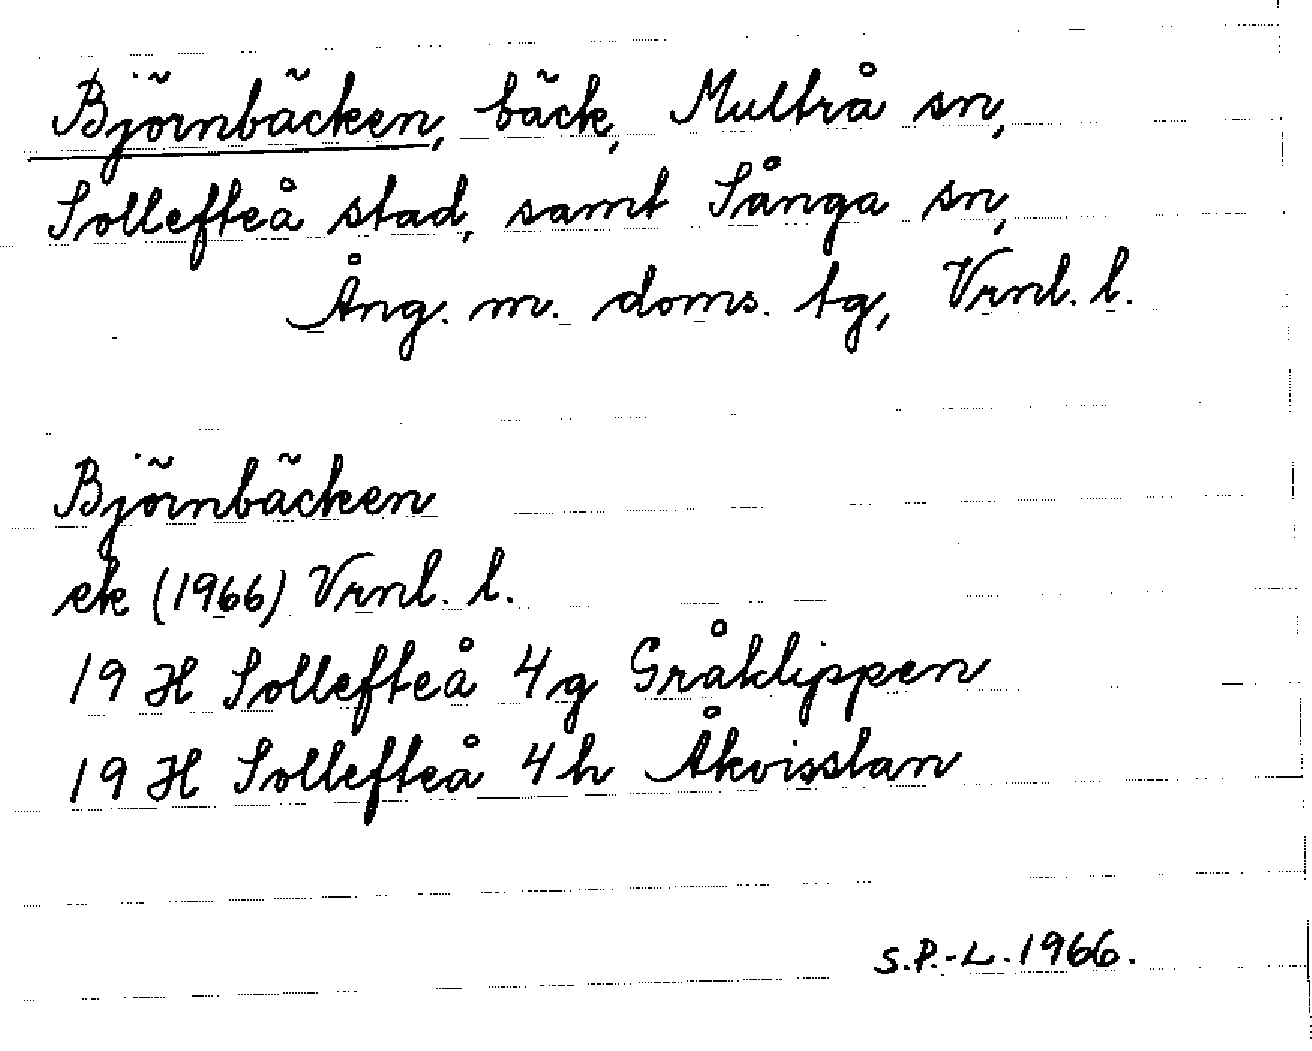 Björnbäcken, bäck, Multrå sn,
Sollefteå stad, samt Sånga sn,
Ång. m. doms. tg, Vrnl. l.
Björnbäcken
ek (1966) Vrnl. l.
19 H Sollefteå 4g Gråklippen
19 H Sollefteå 4h Åkvisslan
S.P.-L. 1966.